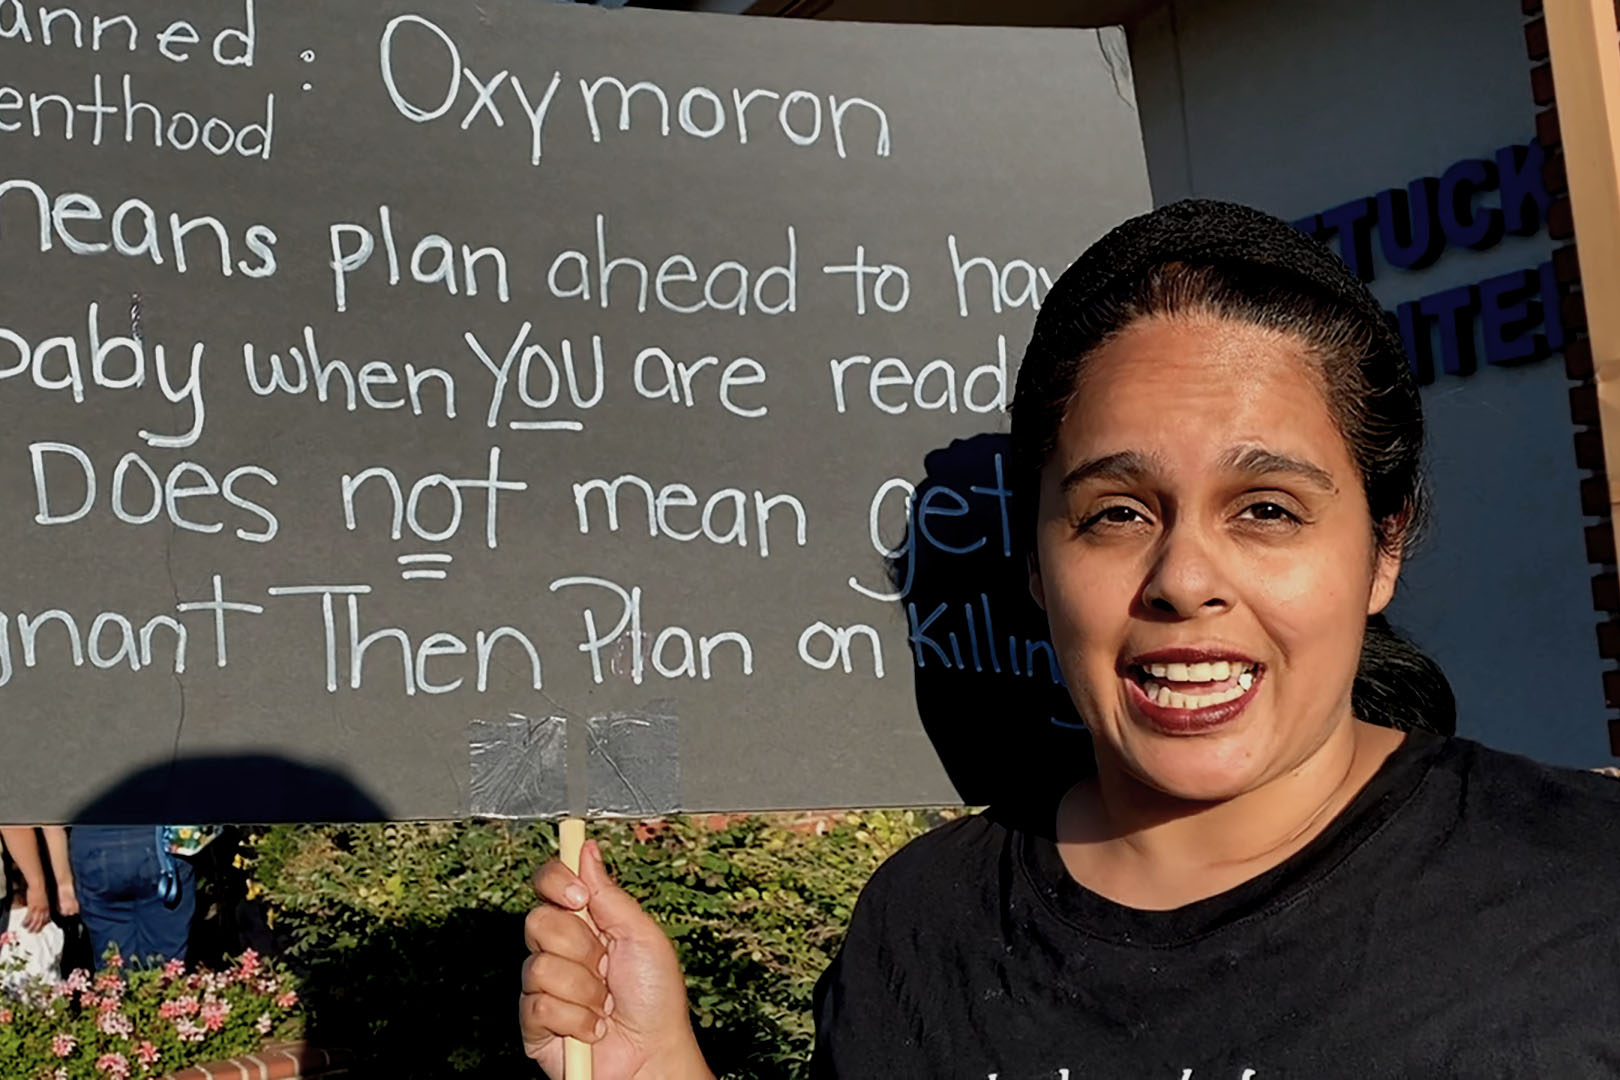 anned : Oxymoron
enthood
means plan ahead to hav
baby when YOU are read
Does not mean get
gnant Then Plan on Killing
TUCK
NTE